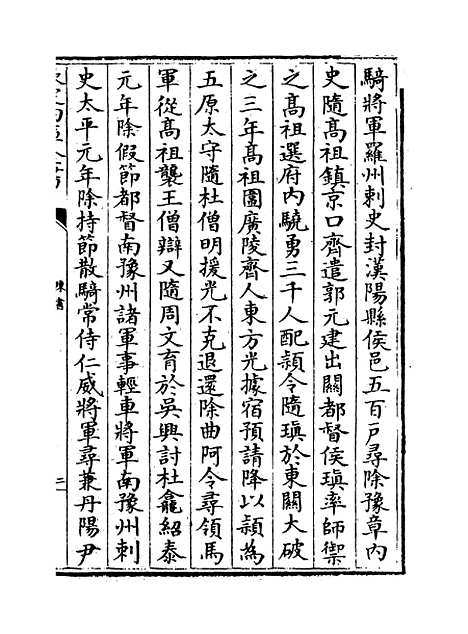 騎將軍羅州刺史封漢陽縣侯邑五百戶尋除豫章内
史隨髙祖鎮京口齊遣郭元建出關都督侯瑱率師禦
之髙祖選府内驍勇三千人配頴令隨瑱於東關大破
之三年髙祖圍廣陵齊人東方光據宿預請降以頴為
五原太守隨杜僧明援光不克退還除曲阿令尋領馬
軍從髙祖襲王僧辯又隨周文育於吳興討杜龕紹泰
元年除假節都督南豫州諸軍事輕車將軍南豫州刺
史太平元年除持節散騎常侍仁威將軍尋兼丹陽尹
陳書
二